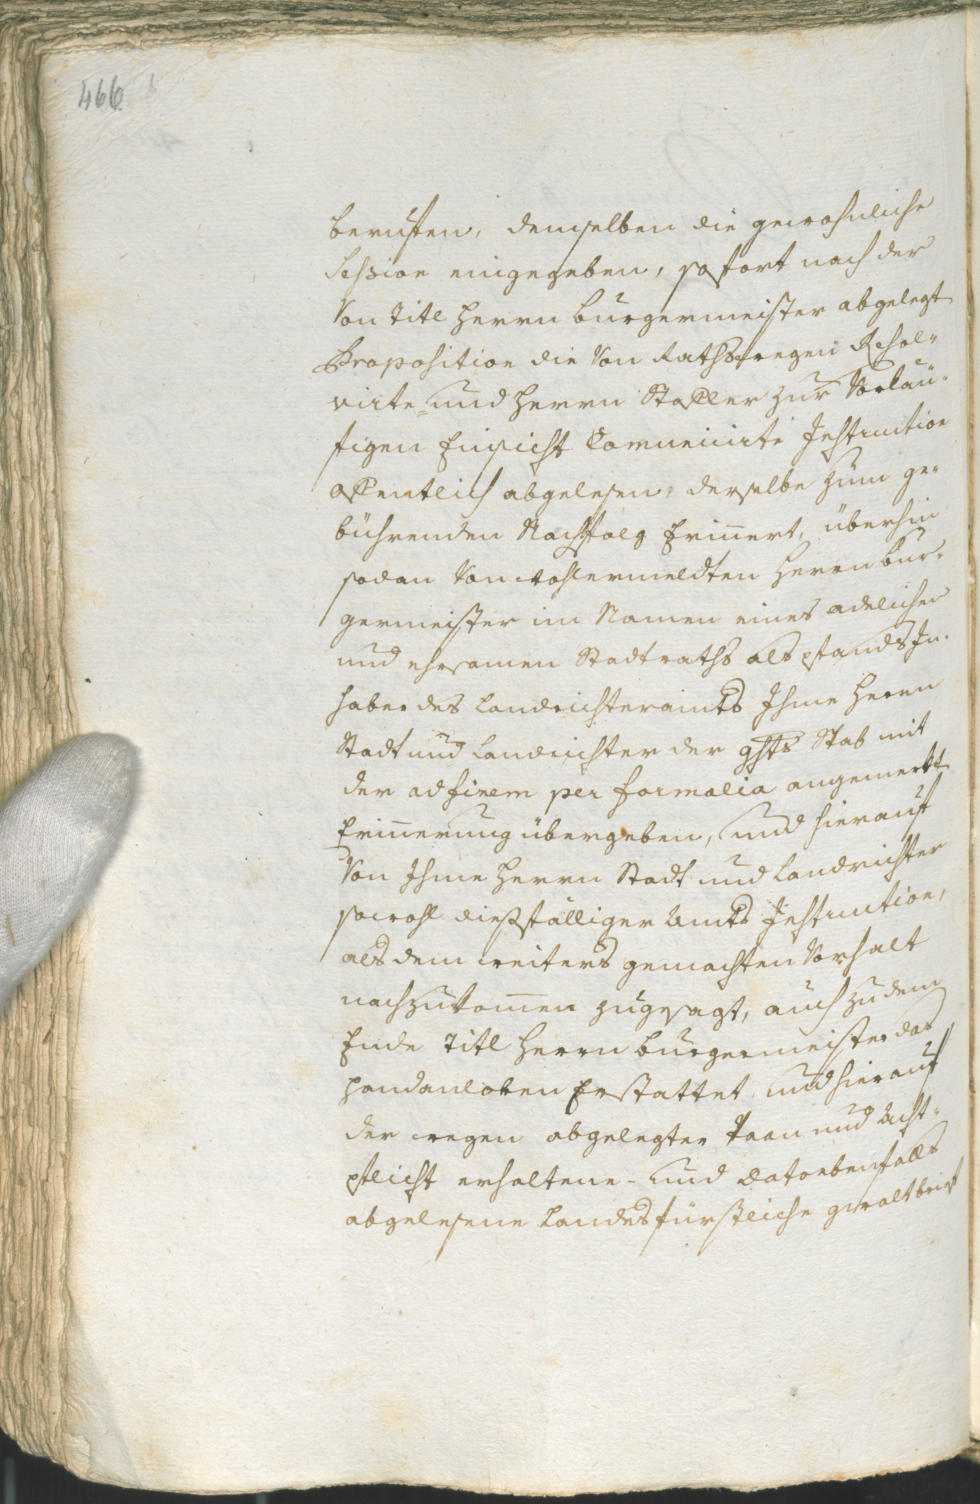 466
beruffen, demselben die gewohnliche
Session eingegeben, sofort nach der
Von Titl Herrn Burgermeister abgelegt
Proposition die Von Rathswegen Resol-
virte und Herrn Staffler zur Vorläu-
figen Einsicht Comunicirte Instruction
offentlich abgelesen, derselbe zum ge-
bührenden Nachfolg Erinert, überhin
sodan Von wohlermeldten Herrn Bur-
germeister im Namen eines adelichen
und ehrsamen Stadtraths als Pfands In-
haber des Landrichteramts Ihme Herrn
Stadt und Landrichter der ghts Stab mit
der ad finem per formalia angemerkt
Erinnerung übergeben, und hierauf
Von Ihme Herrn Stadt und Landrichter
sowohl dießfälliger Amts Instruction,
als dem weiters gemachten Vorhalt
nachzukomen zugesagt, auch zu dem
Ende Titl Herrn Burgermeister das
Handanloben Erstattet und hierauf
der wegen abgelegter Baan und Acht-
pflicht erhaltene - und dato ebenfalls
abgelesene Landesfürstliche gwaltbrief